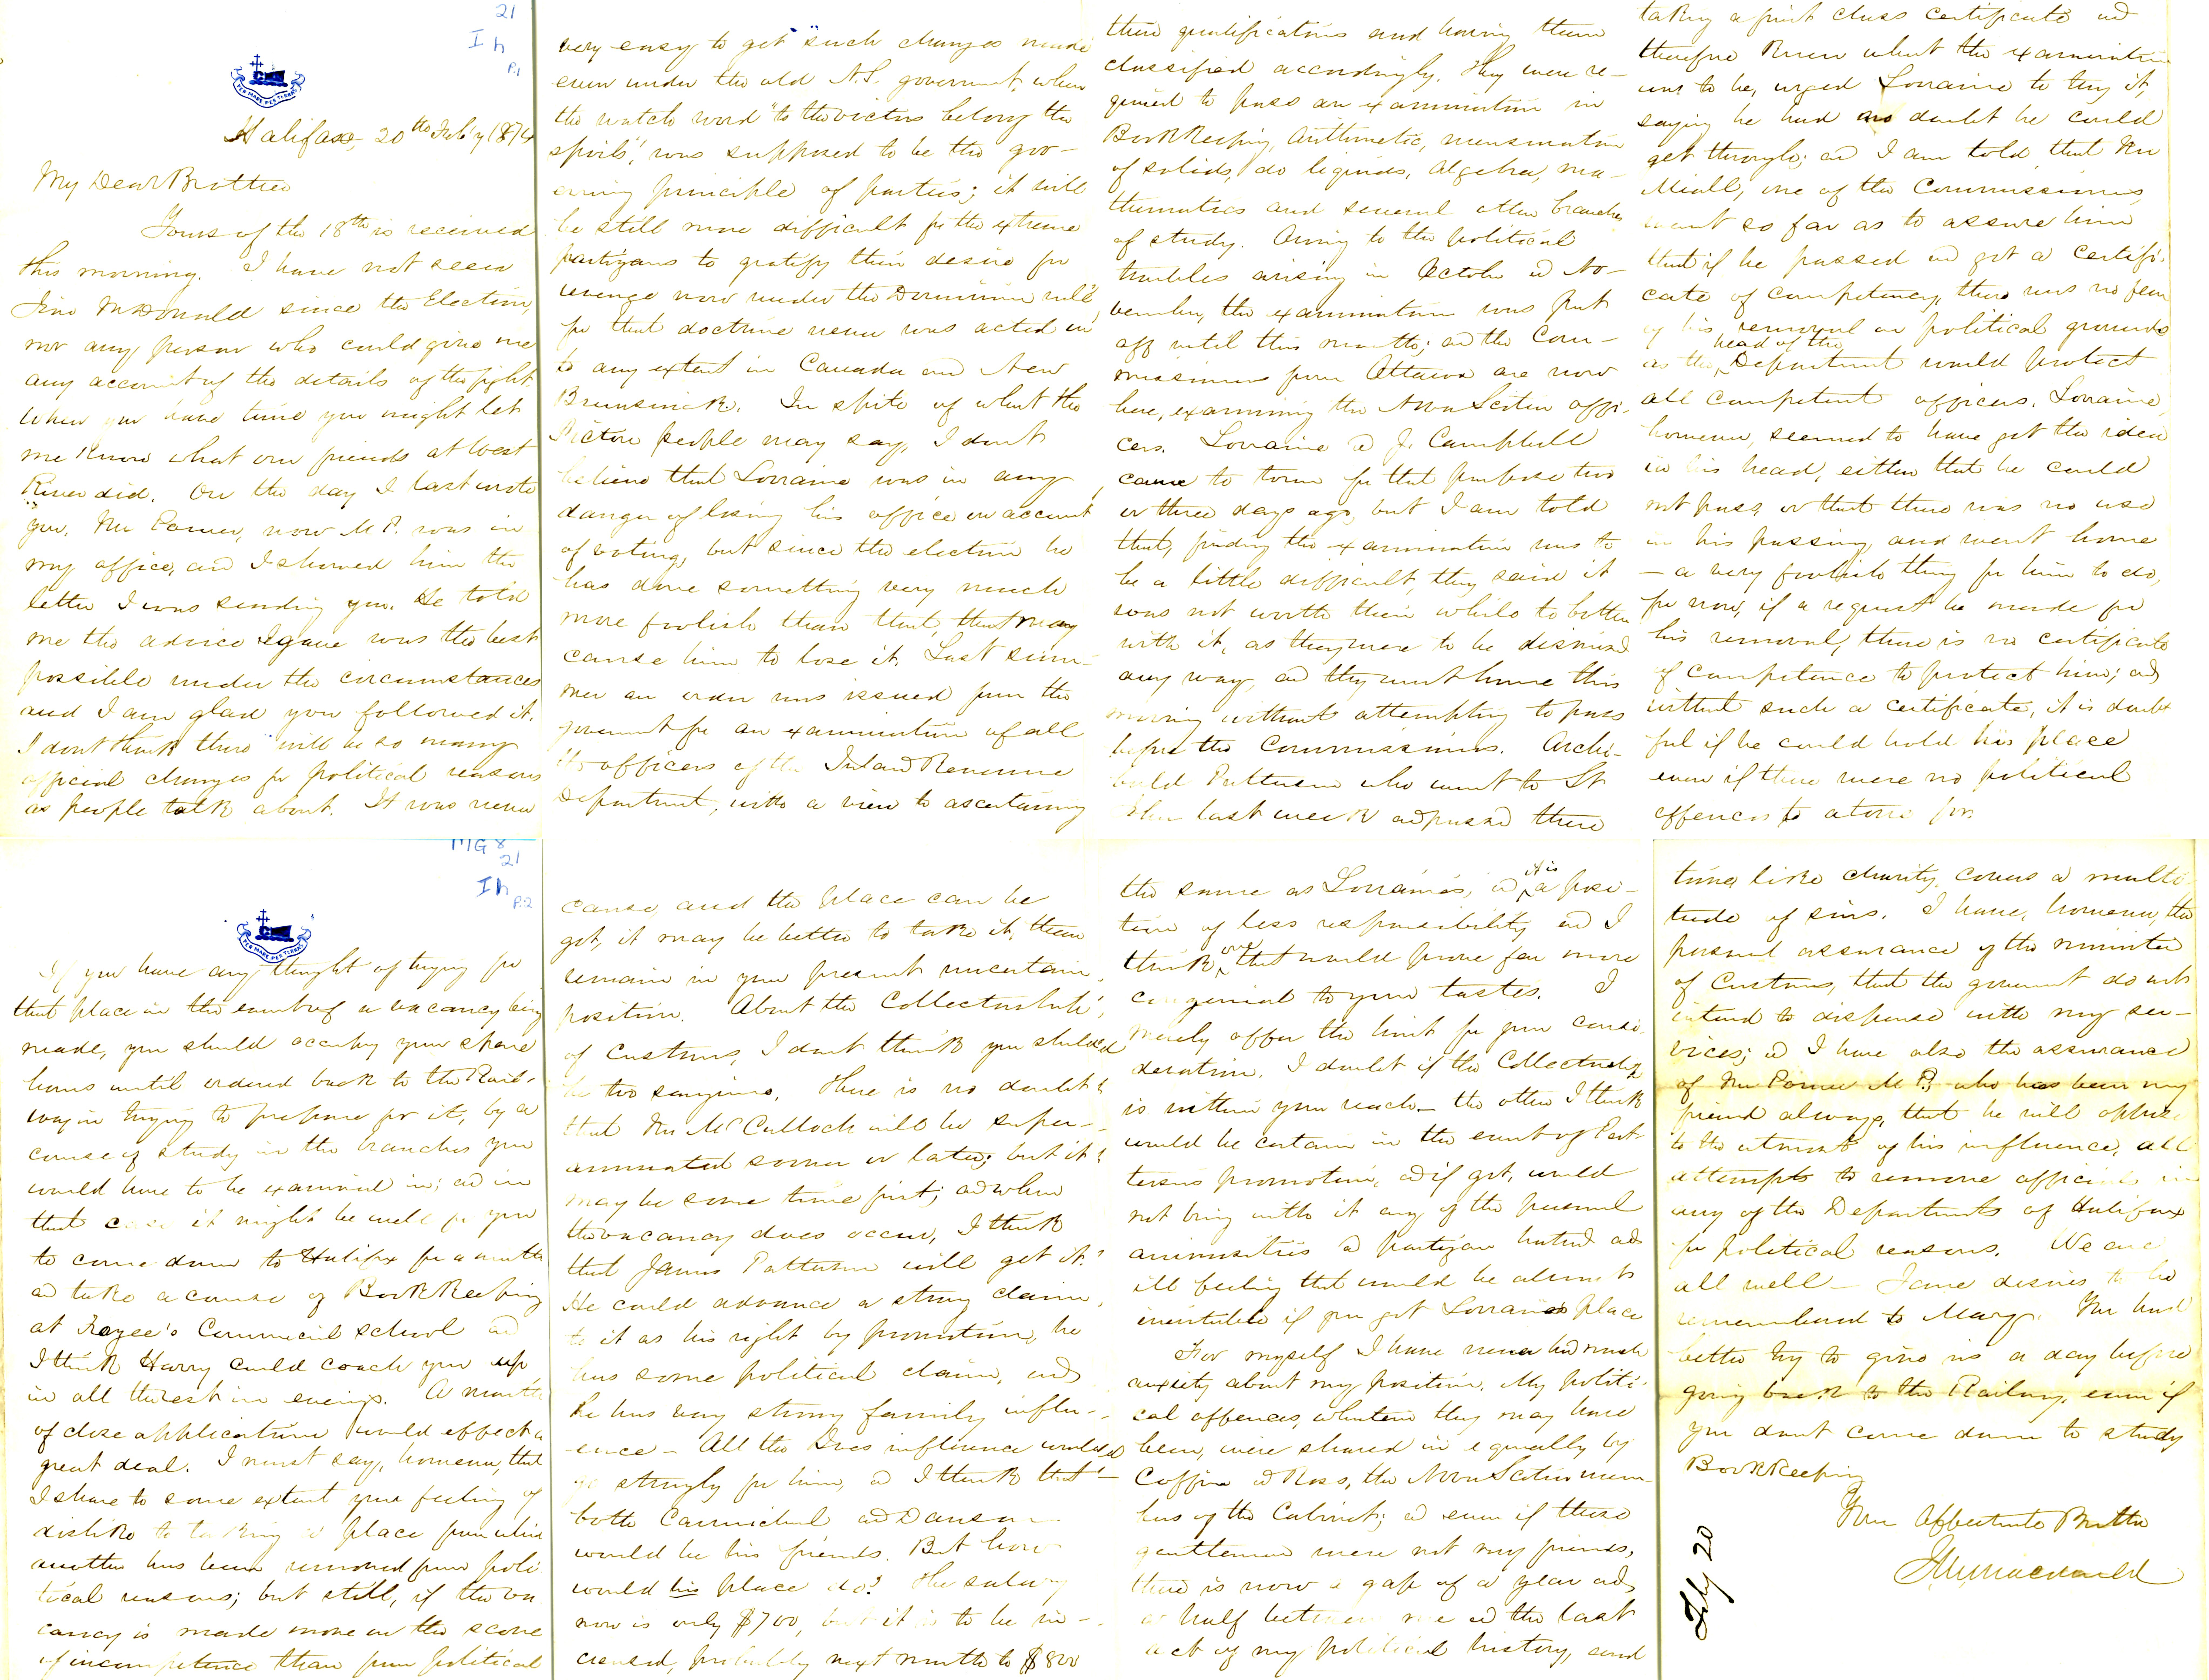 21
I h
P.1
PER MARE PER TERRAS
Halifax, 20th Feb'y 1874
My Dear Brother
Yours of the 18th is received
this morning. I have not seen
Jno McDonald since the Election,
nor any person who could give me
any account of the details of the fight.
When you have time you might let
me know what our friends at West
River did. On the day I last wrote
you, Mr Power, now M.P. was in
my office, and I showed him the
letter I was sending you. He told
me the advice I gave was the best
possible under the circumstances
and I am glad you followed it.
I dont think there will be so many
official changes for political reasons
as people talk about. It was never
very easy to get such changes made
even under the old N.S. government, when
the watch word "to the victors belong the
spoils", was supposed to be the gov-
erning principle of parties; it will
be still more difficult for the extreme
partizans to gratify their desire for
revenge now under the Dominion rule,
for that doctrine never was acted on
to any extent in Canada and New
Brunswick. In spite of what the
Pictou people may say, I dont
believe that Lorraine was in any
danger of losing his office on account
of voting, but since the election he
has done something very much
more foolish than that, that may
cause him to lose it. Last sum-
mer an order was issued from the
government for an examination of all
the officers of the Inland Revenue
Department, with a view to ascertaining
their qualifications and having them
classified accordingly. They were re-
quired to pass an examination in
Book Keeping, Arithmetic, mensuration
of solids, do liquids, Algebra, ma-
thematics and several other branches
of study. Owing to the political
troubles arising in October and No-
vember, the examination was put
off until this month; and the Com-
missioners from Ottawa are now
here, examining the Nova Scotia offi-
cers. Lorraine and J. Campbell
came to town for that purpose two
or three days ago, but I am told
that, finding the examination was to
be a little difficult, they said it
was not worth their while to bother
with it, as they were to be dismissed
any way, and they went home this
morning without attempting to pass
before the Commissioners. Archi-
bald Patterson who went to St
John last week and passed there
taking a first class certificate and
therefore knew what the examination
was to be, urged Lorraine to try it,
saying he had no doubt he could
get through; and I am told that Mr
Miall, one of the Commissioners,
went so far as to assure him
that if he passed and got a certifi-
cate of competency, there was no fear
of his removal on political grounds
head of the
as the Department would protect
all competent officers. Lorraine,
however, seemed to have got the idea
in his head, either that he could
not pass, or that there was no use
in his passing, and went home
— a very foolish thing for him to do,
for now, if a request be made for
his removal, there is no certificate
of competence to protect him; and
without such a certificate, it is doubt
ful if he could hold his place
even if there were no political
offences to atone for.
MG 8
21
I h
P.2
PER MARE PER TERRAS
If you have any thought of trying for
that place in the event of a vacancy being
made, you should occupy your spare
hours until ordered back to the Rail-
way in trying to prepare for it, by a
course of study in the branches you
would have to be examined in; and in
that case it might be well for you
to come down to Halifax for a month
and take a course of Book Keeping
at Frazee's Commercial School and
I think Harry could coach you up
in all the rest in evenings. A month
of close application would effect a
great deal. I must say, however, that
I share to some extent your feeling of
dislike to taking a place from which
another has been removed from poli
tical reasons; but still, if the va
cancy is made more on the score
of incompetence than from political
cause, and the place can be
got, it may be better to take it, than
remain in your present uncertain
position. About the Collectorship
of Customs, I dont think you should
be too sanguine. There is no doubt
that Mr McCulloch will be super-
annuated sooner or later; but it
may be some time first; and when
the vacancy does occur, I think
that James Patterson will get it.
He could advance a strong claim
to it as his right by promotion, he
has some political claim, and
he has very strong family influ-
ence — All the Ives influence would
go strongly for him, and I think that
both Carmichael and Dawson
would be his friends. But how
would his place do? The salary
now is only $700, but it is to be in-
creased, probably next month to $800
the same as Lorraine's, and it is a posi-
tion of less responsibility and I
think one that would prove far more
congenial to your tastes. I
merely offer the hint for your consi
deration. I doubt if the Collectorship
is within your reach — the other I think
would be certain in the event of Pat-
terson's promotion, and if got, would
not bring with it any of the personal
animosities and partizan hatred and
ill feeling that would be almost
inevitable if you got Lorraine's place
For myself I have never had much
anxiety about my position. My politi-
cal offences, whatever they may have
been, were shared in equally by
Coffin and Ross, the Nova Scotia mem-
bers of the Cabinet; and even if these
gentlemen were not my friends,
there is now a gap of a year and
a half between me and the last
act of my political history, and
time, like charity, covers a multi-
tude of sins. I have, however, the
personal assurance of the minister
of Customs, that the government do not
intend to dispense with my ser-
vices; and I have also the assurance
of Mr Power M.P. who has been my
friend always, that he will oppose
to the utmost of his influence, all
attempts to remove officials in
any of the Departments of Halifax
for political reasons. We are
all well — Jane desires to be
remembered to Mary. You had
better try to give us a day before
going back to the Railway, even if
you dont come down to study
Book Keeping
Your Affectionate Brother
Feby 20